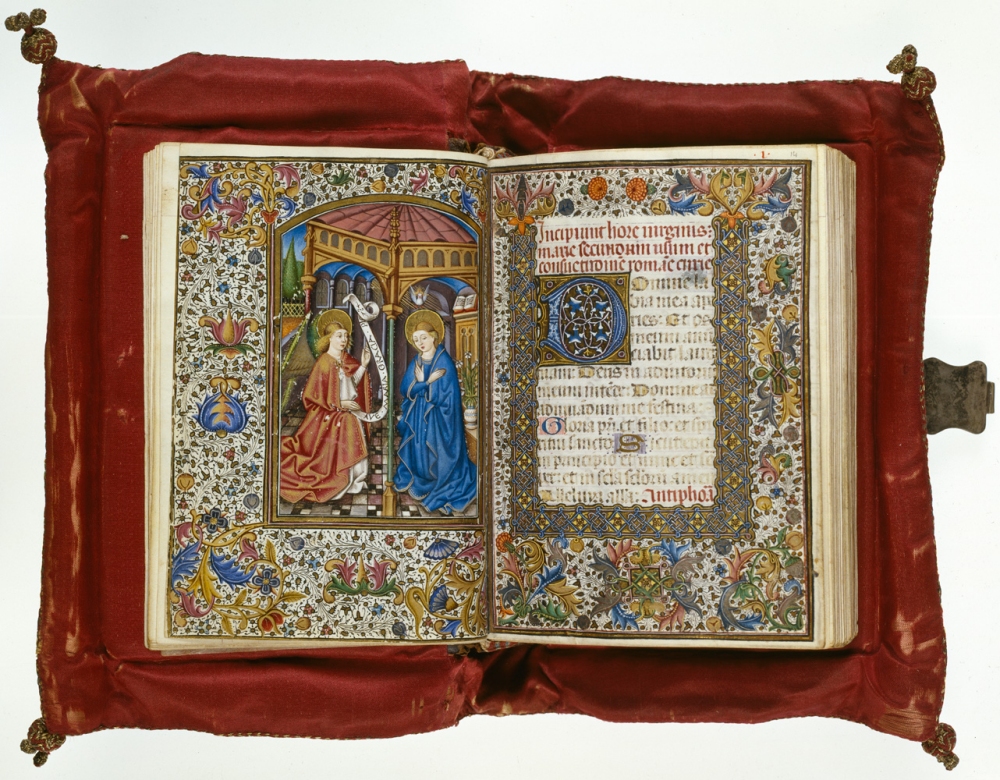 AVE
· 1 ·
Incipiunt hore virginis
marie secundum usum et
consuetudinē romāe curie
Domine la
bia mea ap
ries. Et os
meum annū
ciabit laud
tuam Deus in adiutor
meum intēde Domine
ad iuuādum me festina
Gloria pri et filio et spi
ritui sancto Sicut erat
in principio et nunc et
et in secula seculorum
Alleluia Antiphoā